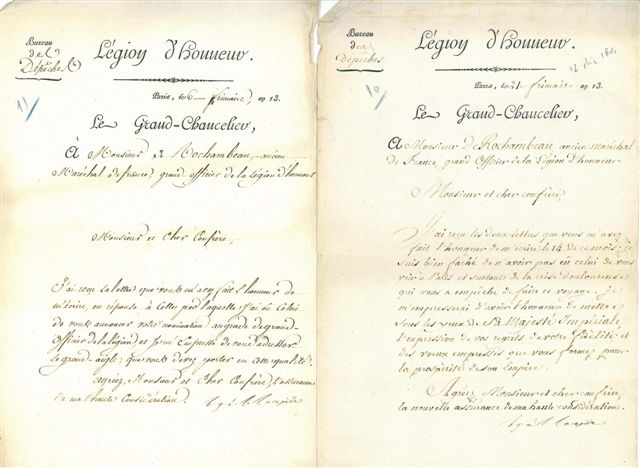 Bureau
des
Dépêches
Légion d'honneur.
11
Paris, le 6 frimaire, an 13.
Le Grand-Chancelier,
À Monsieur de Rochambeau, ancien
Maréchal de france, grand officier de la Légion d'honneur
Monsieur et Cher Confrère,
J'ai reçu la lettre que vous m'avez fait l'honneur de
m'écrire, en réponse à celle par laquelle j'ai eu celui
de vous annoncer votre nomination au grade de grand-
officier de la légion et je m'empresse de vous adresser
le grand-aigle, que vous devez porter en cette qualité.
agréez, Monsieur et Cher Confrère, l'assurance
de ma haute Considération.
Bureau
des
Dépêches
Légion d'honneur.
10
Paris, le 21 frimaire, an 13.
Le Grand-Chancelier,
À Monsieur De Rochambeau, ancien maréchal
de France, grand Officier de la Légion d'honneur
Monsieur et cher confrère,
J'ai reçu les deux lettres que vous m'avez
fait l'honneur de m'écrire le 14 de ce mois; je
suis bien fâché de n'avoir pas eu celui de vous
voir à Paris et surtout de la crise douloureuse
qui vous a empêché de faire ce voyage. je
m'empresserai d'avoir l'honneur de mettre
sous les yeux de Sa Majesté Impériale,
l'expression de vos regrets de votre fidélité et
des voeux empressés que vous formez pour
la prospérité de son Empire.
Agréez, Monsieur et cher confrère,
la nouvelle assurance de ma haute considération.